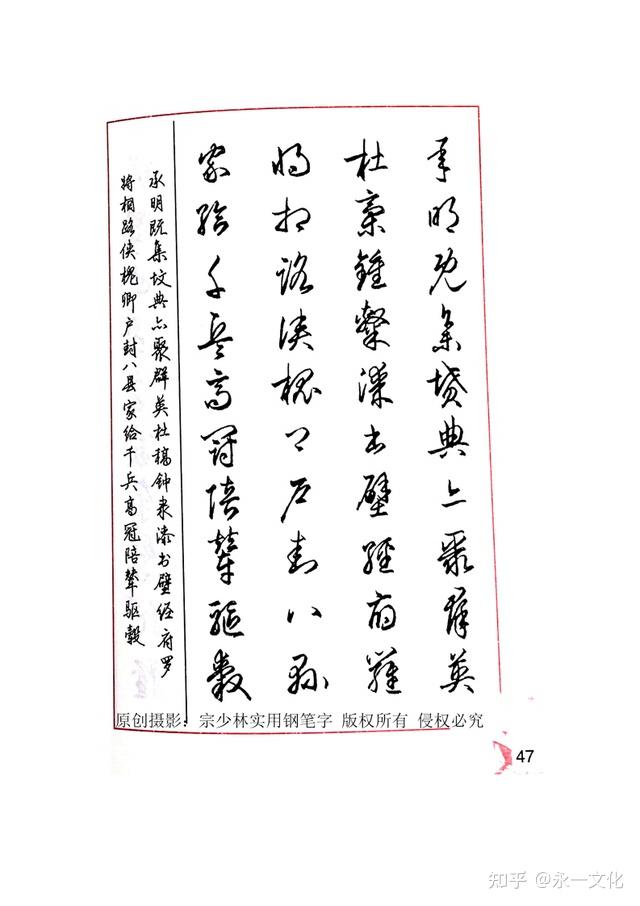 承明既集墳典亦聚群英
杜稾鍾隸漆書壁經府羅
將相路俠槐卿戶封八縣
家給千兵高冠陪輦驅轂
承明既集坟典亦聚群英杜稿钟隶漆书壁经府罗
将相路侠槐卿户封八县家给千兵高冠陪辇驱毂
原创摄影：宗少林实用钢笔字 版权所有 侵权必究
47
知乎 @永一文化